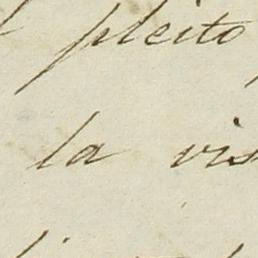 pleito
la vis